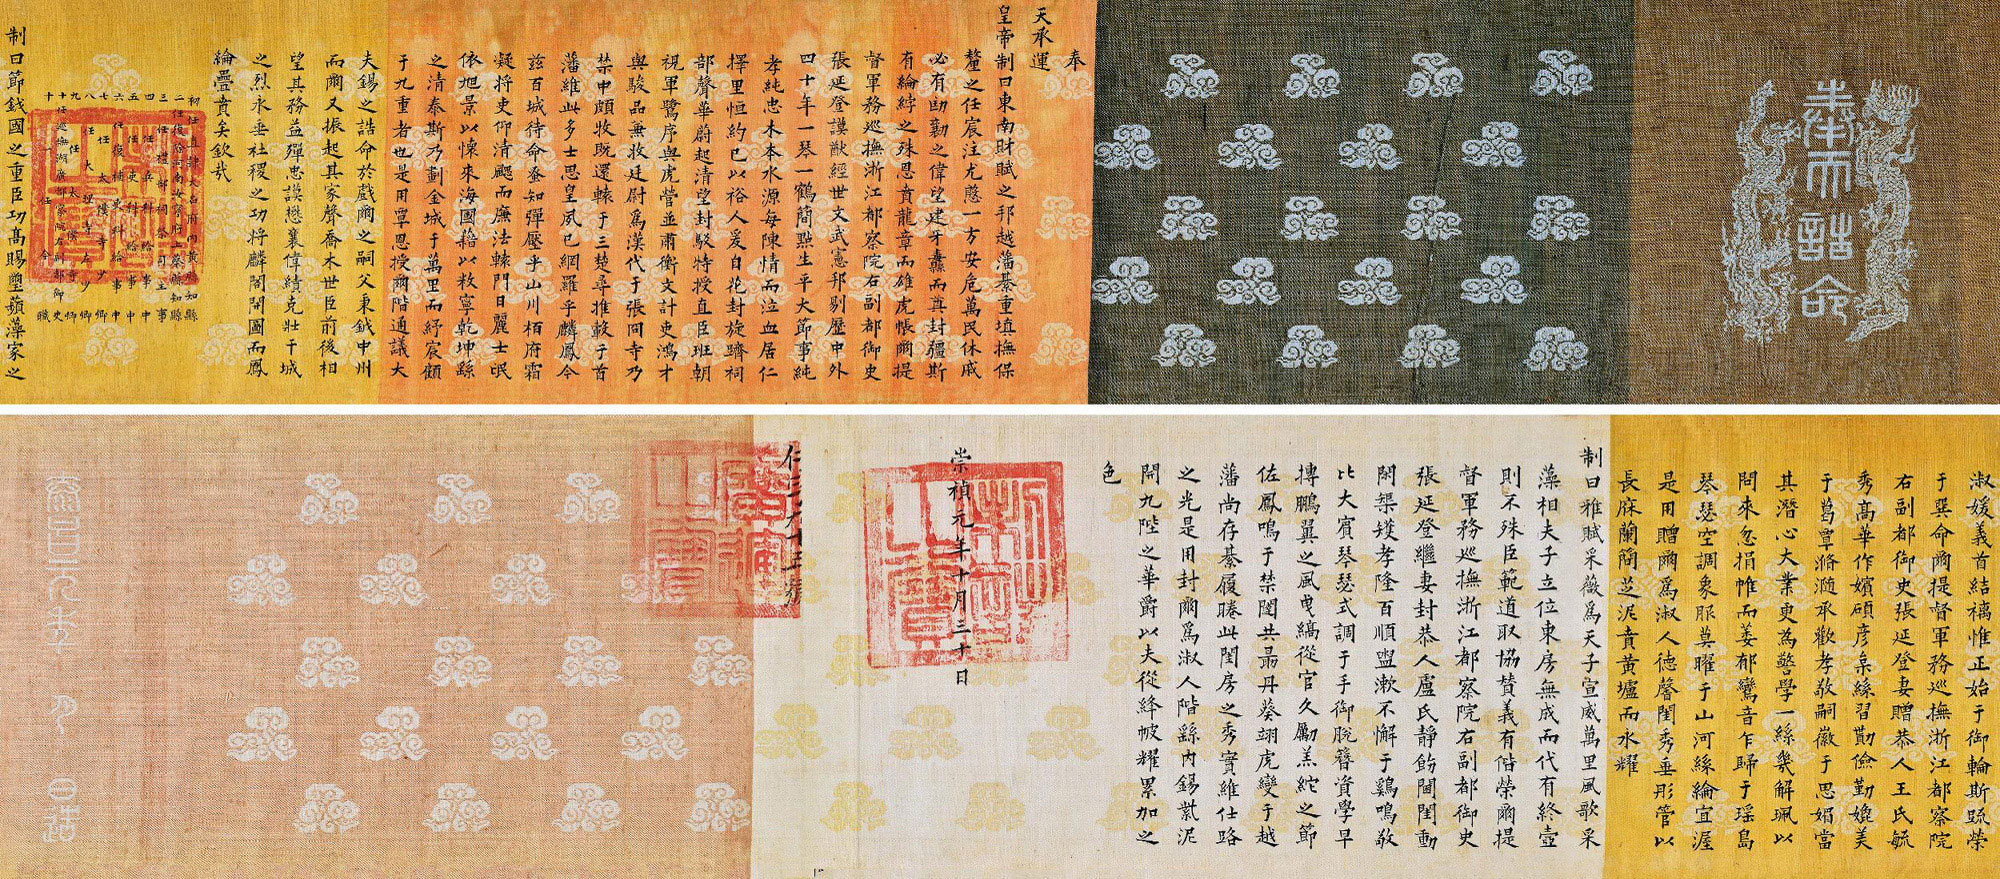 奉天誥命
奉
天承運
皇帝制曰東南財賦之邦越藩綦重填撫保
釐之任宸注尤慇一方安危萬民休戚
必有劻勷之偉望建牙纛而奠封疆斯
有綸綍之殊恩賁龍章而雄虎帳爾提
督軍務巡撫浙江都察院右副都御史
張延登謨猷經世文武憲邦剔歷中外
四十年一琴一鶴簡點生平大節事純
孝純忠木本水源每陳情而泣血居仁
擇里恒約己以裕人爰自花封旋躋祠
部聲華蔚起清望封駁特授直臣班朝
視軍鷺序與虎營並肅衡文計吏鴻才
與駿品兼收廷尉為漢代于張冏寺乃
禁中頗牧既還轅于三楚尋推轂于首
藩維此多士思皇夙已網羅乎麟鳳今
茲百城待命蚤知彈壓乎山川栢府霜
凝將吏仰清飈而廡法轅門日麗士民
依旭景以懷來海國藉以敉寧乾坤繇
之清泰斯乃劃金城于萬里而紓宸顧
于九重者也是用覃恩授爾階通議大
夫錫之誥命於戲爾之嗣父秉鉞中州
而爾又振起其家聲喬木世臣前後相
望其務益殫忠謨懋襄偉績克壯干城
之烈永垂社稷之功將麟閣開圖而鳳
綸疊賁矣欽哉
初任直隸大名府內黃縣知縣
二任復除河南汝寧府上蔡縣知縣
三任禮部祠祭司主事
四任兵科給事中
五任吏科給事中
六任復補吏科給事中
七任太僕寺少卿
八任大理寺左少卿
九任太僕寺卿
十任巡撫湖廣都察院右副都御史
十一任今職
制曰節鉞國之重臣功高賜璽蘋藻家之
淑媛義首結褵惟正始于御輪斯疏榮
于巽命爾提督軍務巡撫浙江都察院
右副都御史張延登妻贈恭人王氏毓
秀高華作嬪碩彥枲絲習勤儉勤媲美
于葛覃滫瀡承歡孝敬嗣徽于思媚當
其潛心大業更為警學一絲幾解珮以
問來忽捐帷而萎郁鸞音乍歸于瑶島
琴瑟空調象服莫曜于山河絲綸宜渥
是用贈爾為淑人德馨閨秀垂彤管以
長庥蘭蕳芝泥賁黃壚而永耀
制曰雅賦采薇為天子宣威萬里風歌采
藻相夫子立位東房無成而代有終壼
則不殊臣範道取協贊義有偕榮爾提
督軍務巡撫浙江都察院右副都御史
張延登繼妻封恭人盧氏靜飭閫閨動
閑榘矱孝隆百順盥漱不懈于雞鳴敬
比大賓琴瑟式調于手御脫簪資學早
摶鵬翼之風曳縞從官久勵羔紽之節
佐鳳鳴于禁闥共最丹葵翊虎變于越
藩尚存綦履睠此閨房之秀實維仕路
之光是用封爾為淑人階繇內錫紫泥
開九陛之華爵以夫從絳帔耀累加之
色
崇禎元年十月三十日